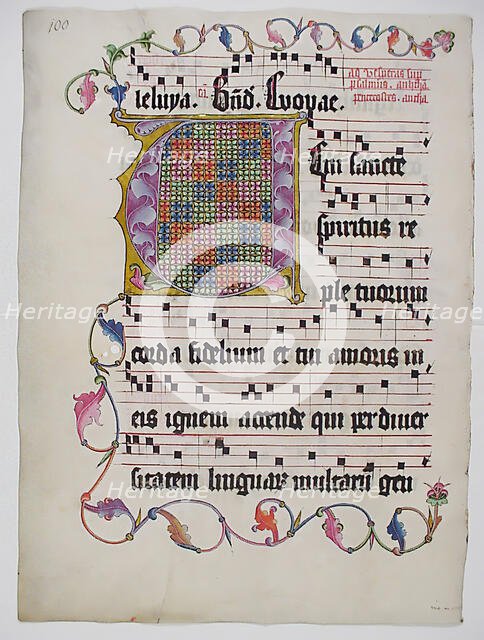 100
leluya. Bñd. Evovae.
ad vesperas sup
Eni sancte
spiritus re
ple tuorum
corda fidelium et tui amoris in
eis ignem accende qui per diver
sitatem linguarū multarū gen
Heritage
Heritage
Heritage
Heritage
Heritage
Heritage